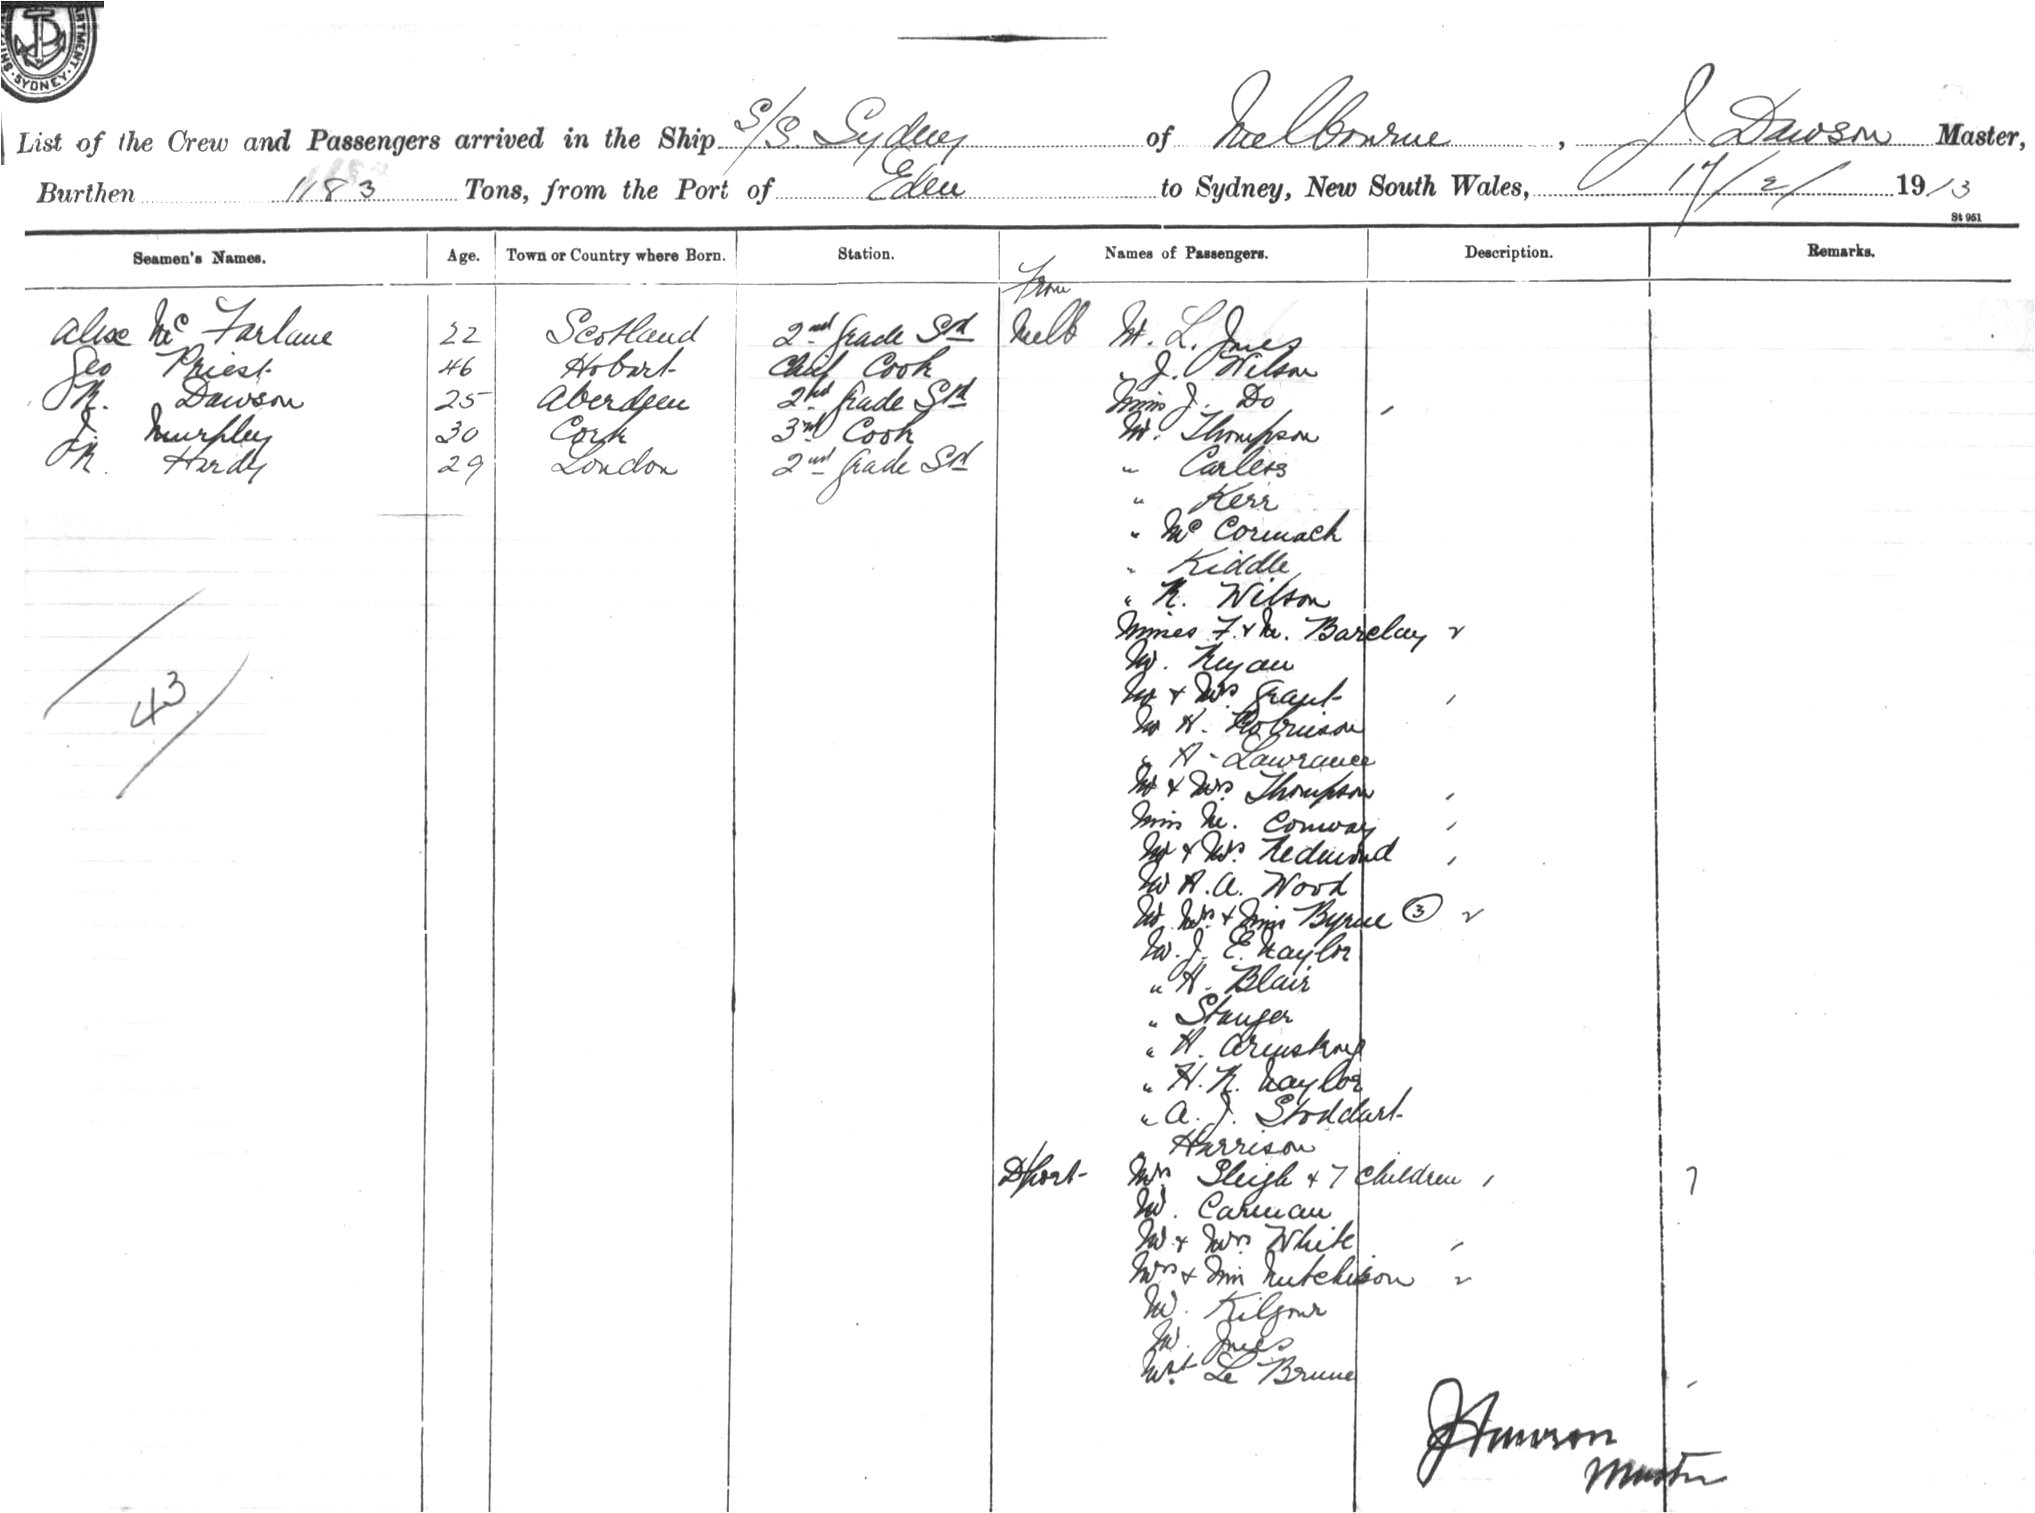 SYDNEY
List of the Crew and Passengers arrived in the Ship S/S Sydney of Melbourne, J. Dawson Master,
Burthen 1183 Tons, from the Port of Eden to Sydney, New South Wales, 17/2/ 1913
St 961
Seamen's Names. Age. Town or Country where Born. Station. Names of Passengers. Description. Remarks.
From
Alex Mc Farlane 22 Scotland 2nd Grade Std Melb Mr. L. Jones
Geo Priest 46 Hobart Chief Cook " J. Wilson
R. Dawson 25 Aberdeen 2nd Grade Std Miss J. Do
J. Murphy 30 Cork 3rd Cook Mr. Thompson
R. Hardy 29 London 2nd Grade Std " Carless
" Kerr
" Mc Cormack
" Kiddle
" R. Wilson
Misses F. & M. Barclay 2
Mr. Ryan
Mr & Mrs Grant
43
Mr H. Robinson
" A. Lawrance
Mr & Mrs Thompson
Miss M. Conway
Mr & Mrs Redmond
Mr A. A. Wood
Mr Mrs & Miss Byrne 3 2
Mr. J. E. Naylor
" H. Blair
" Stanger
" H. Armstrong
" H. R. Naylor
" A. J. Stoddart
" Harrison
D/port Mrs Sleigh & 7 Children 7
Mr. Carman
Mr & Mrs White
Mrs & Miss Hutchison 2
Mr. Kilgour
Mr. Jones
Le Brune
J Dawson
Master